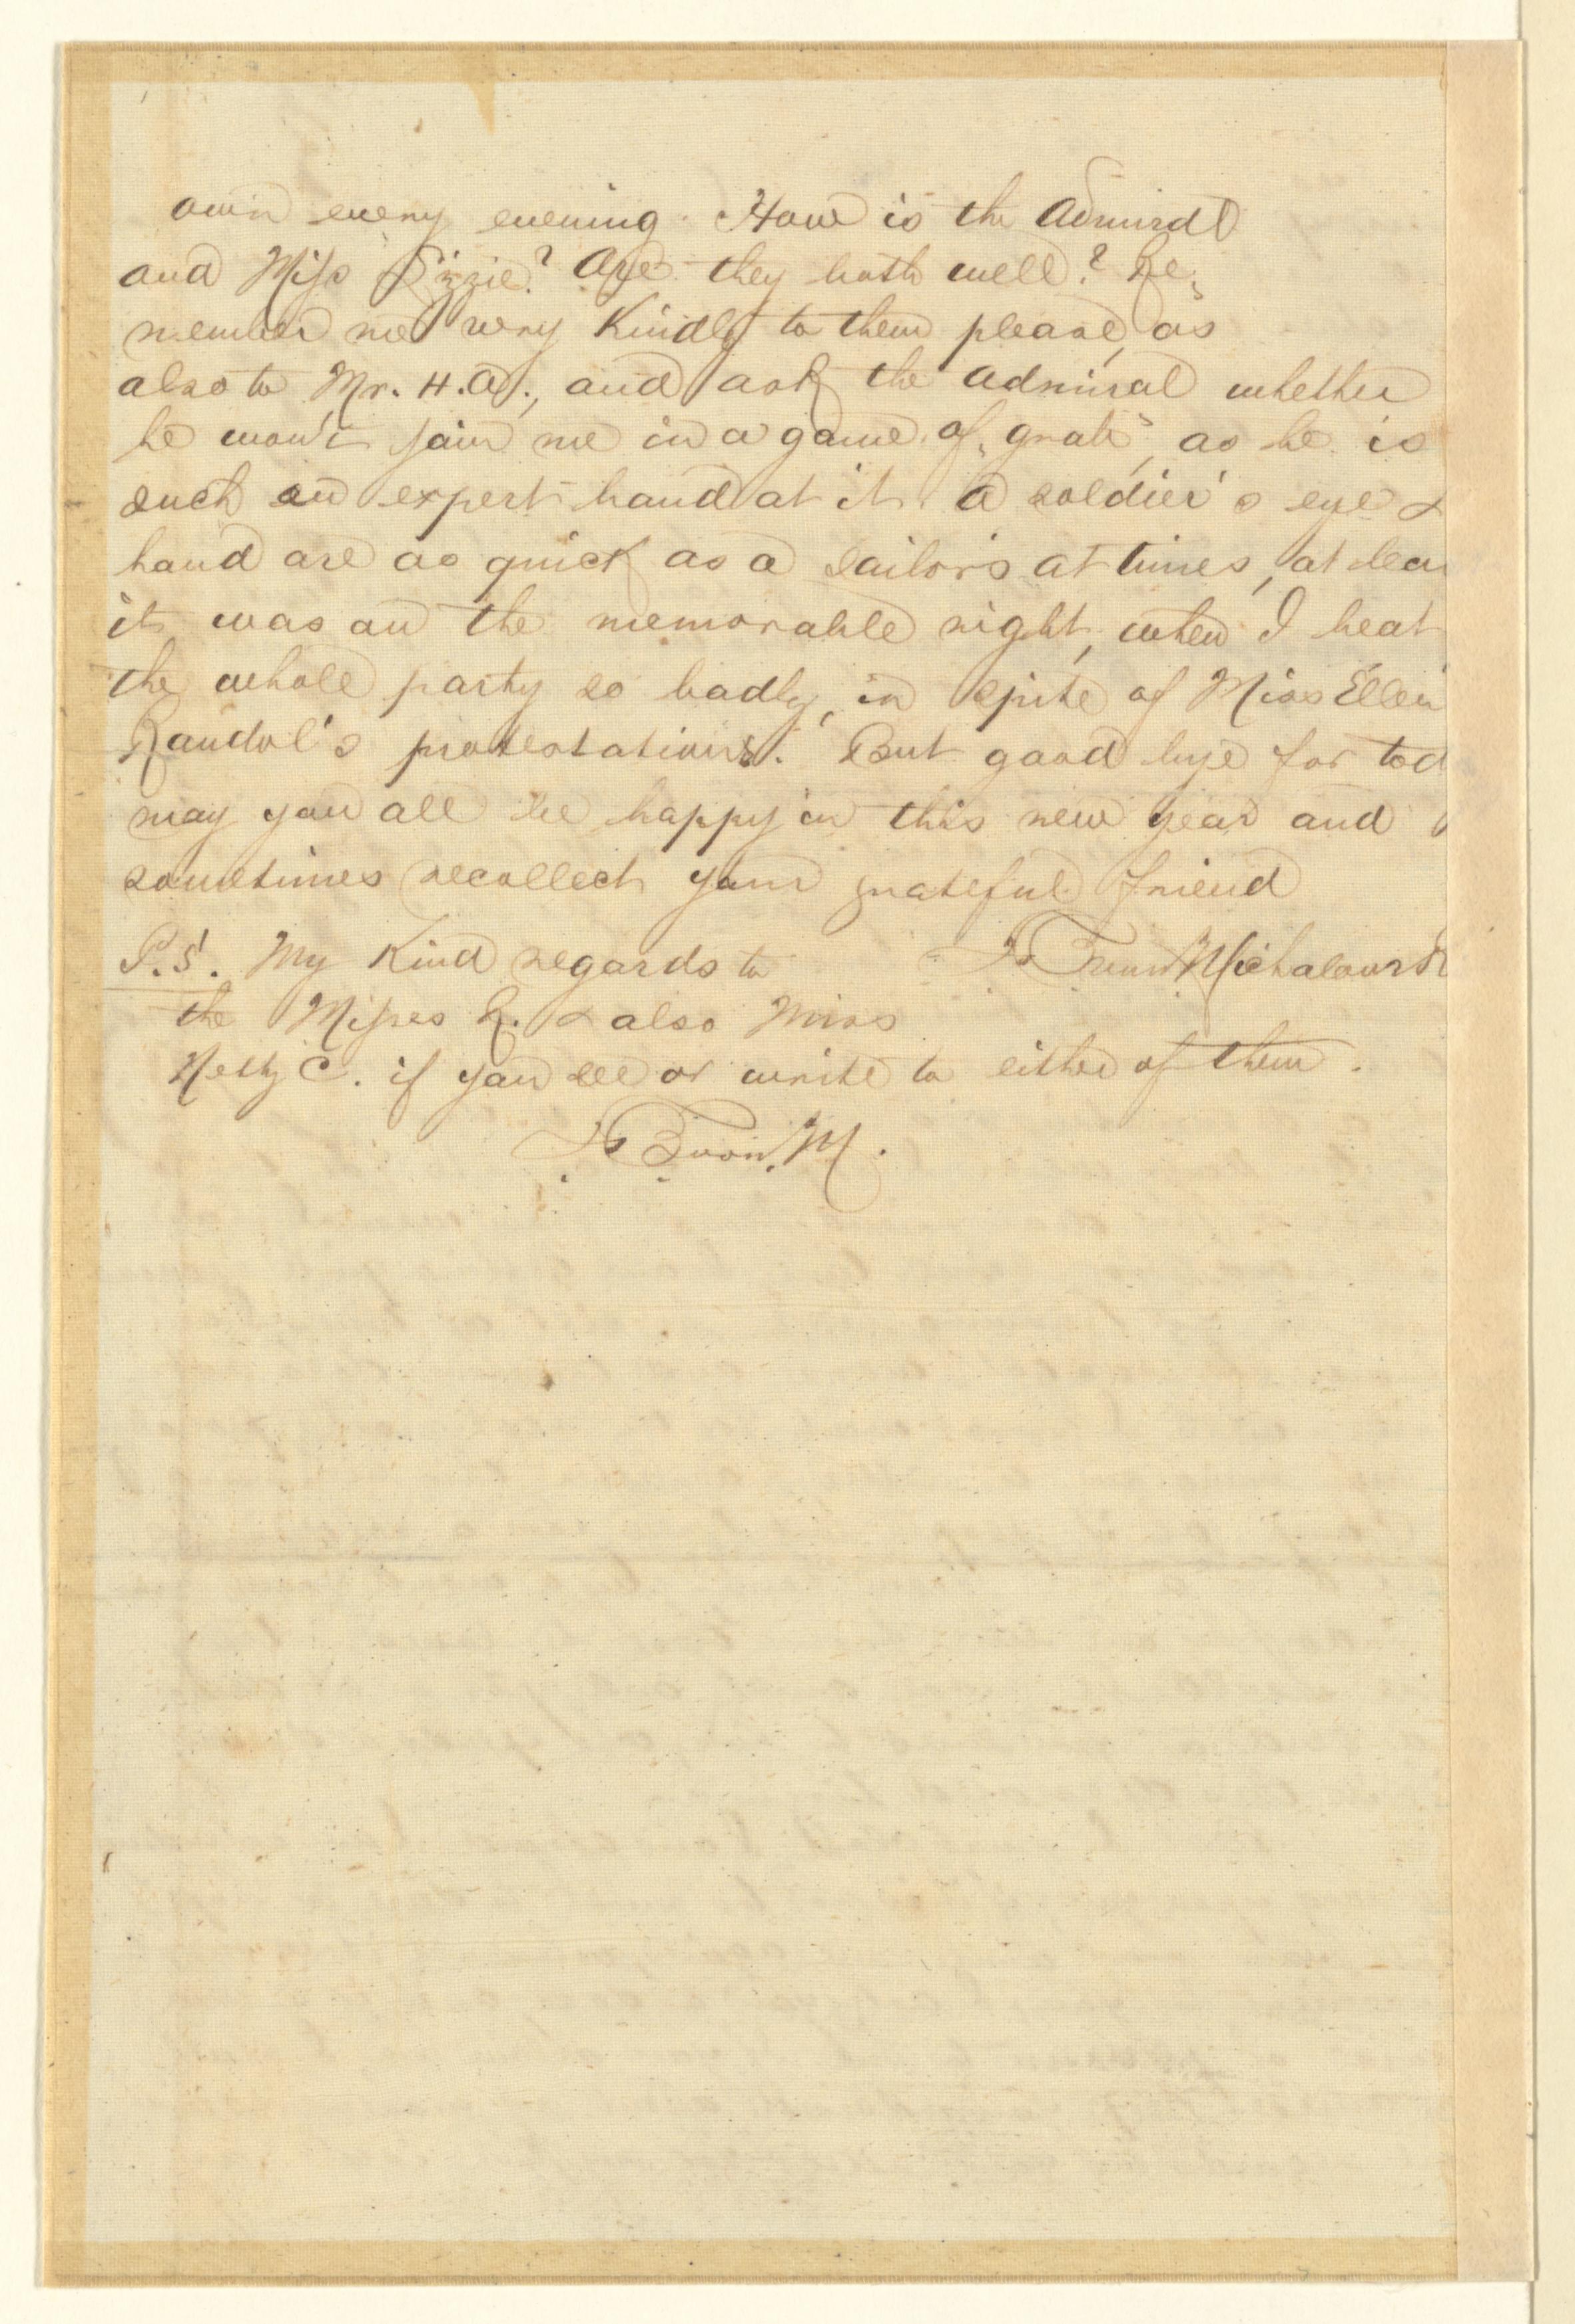 own every evening. How is the Admiral
and Miss Lizzie? Are they both well? Re-
member me very kindly to them please, as
also to Mr. H.A., and ask the Admiral whether
he won't join me in a game of "grab", as he is
such an expert hand at it. A soldier's eye &
hand are as quick as a sailor's at times, at lea
it was on the memorable night, when I beat
the whole party so badly, in spite of Miss Ellen
Randol's protestations. But good bye for tod
may you all be happy in this new year and
sometimes recollect your grateful friend
P.S. My Kind regards to
the Misses R. & also Miss
Netty C. if you see or write to either of them.